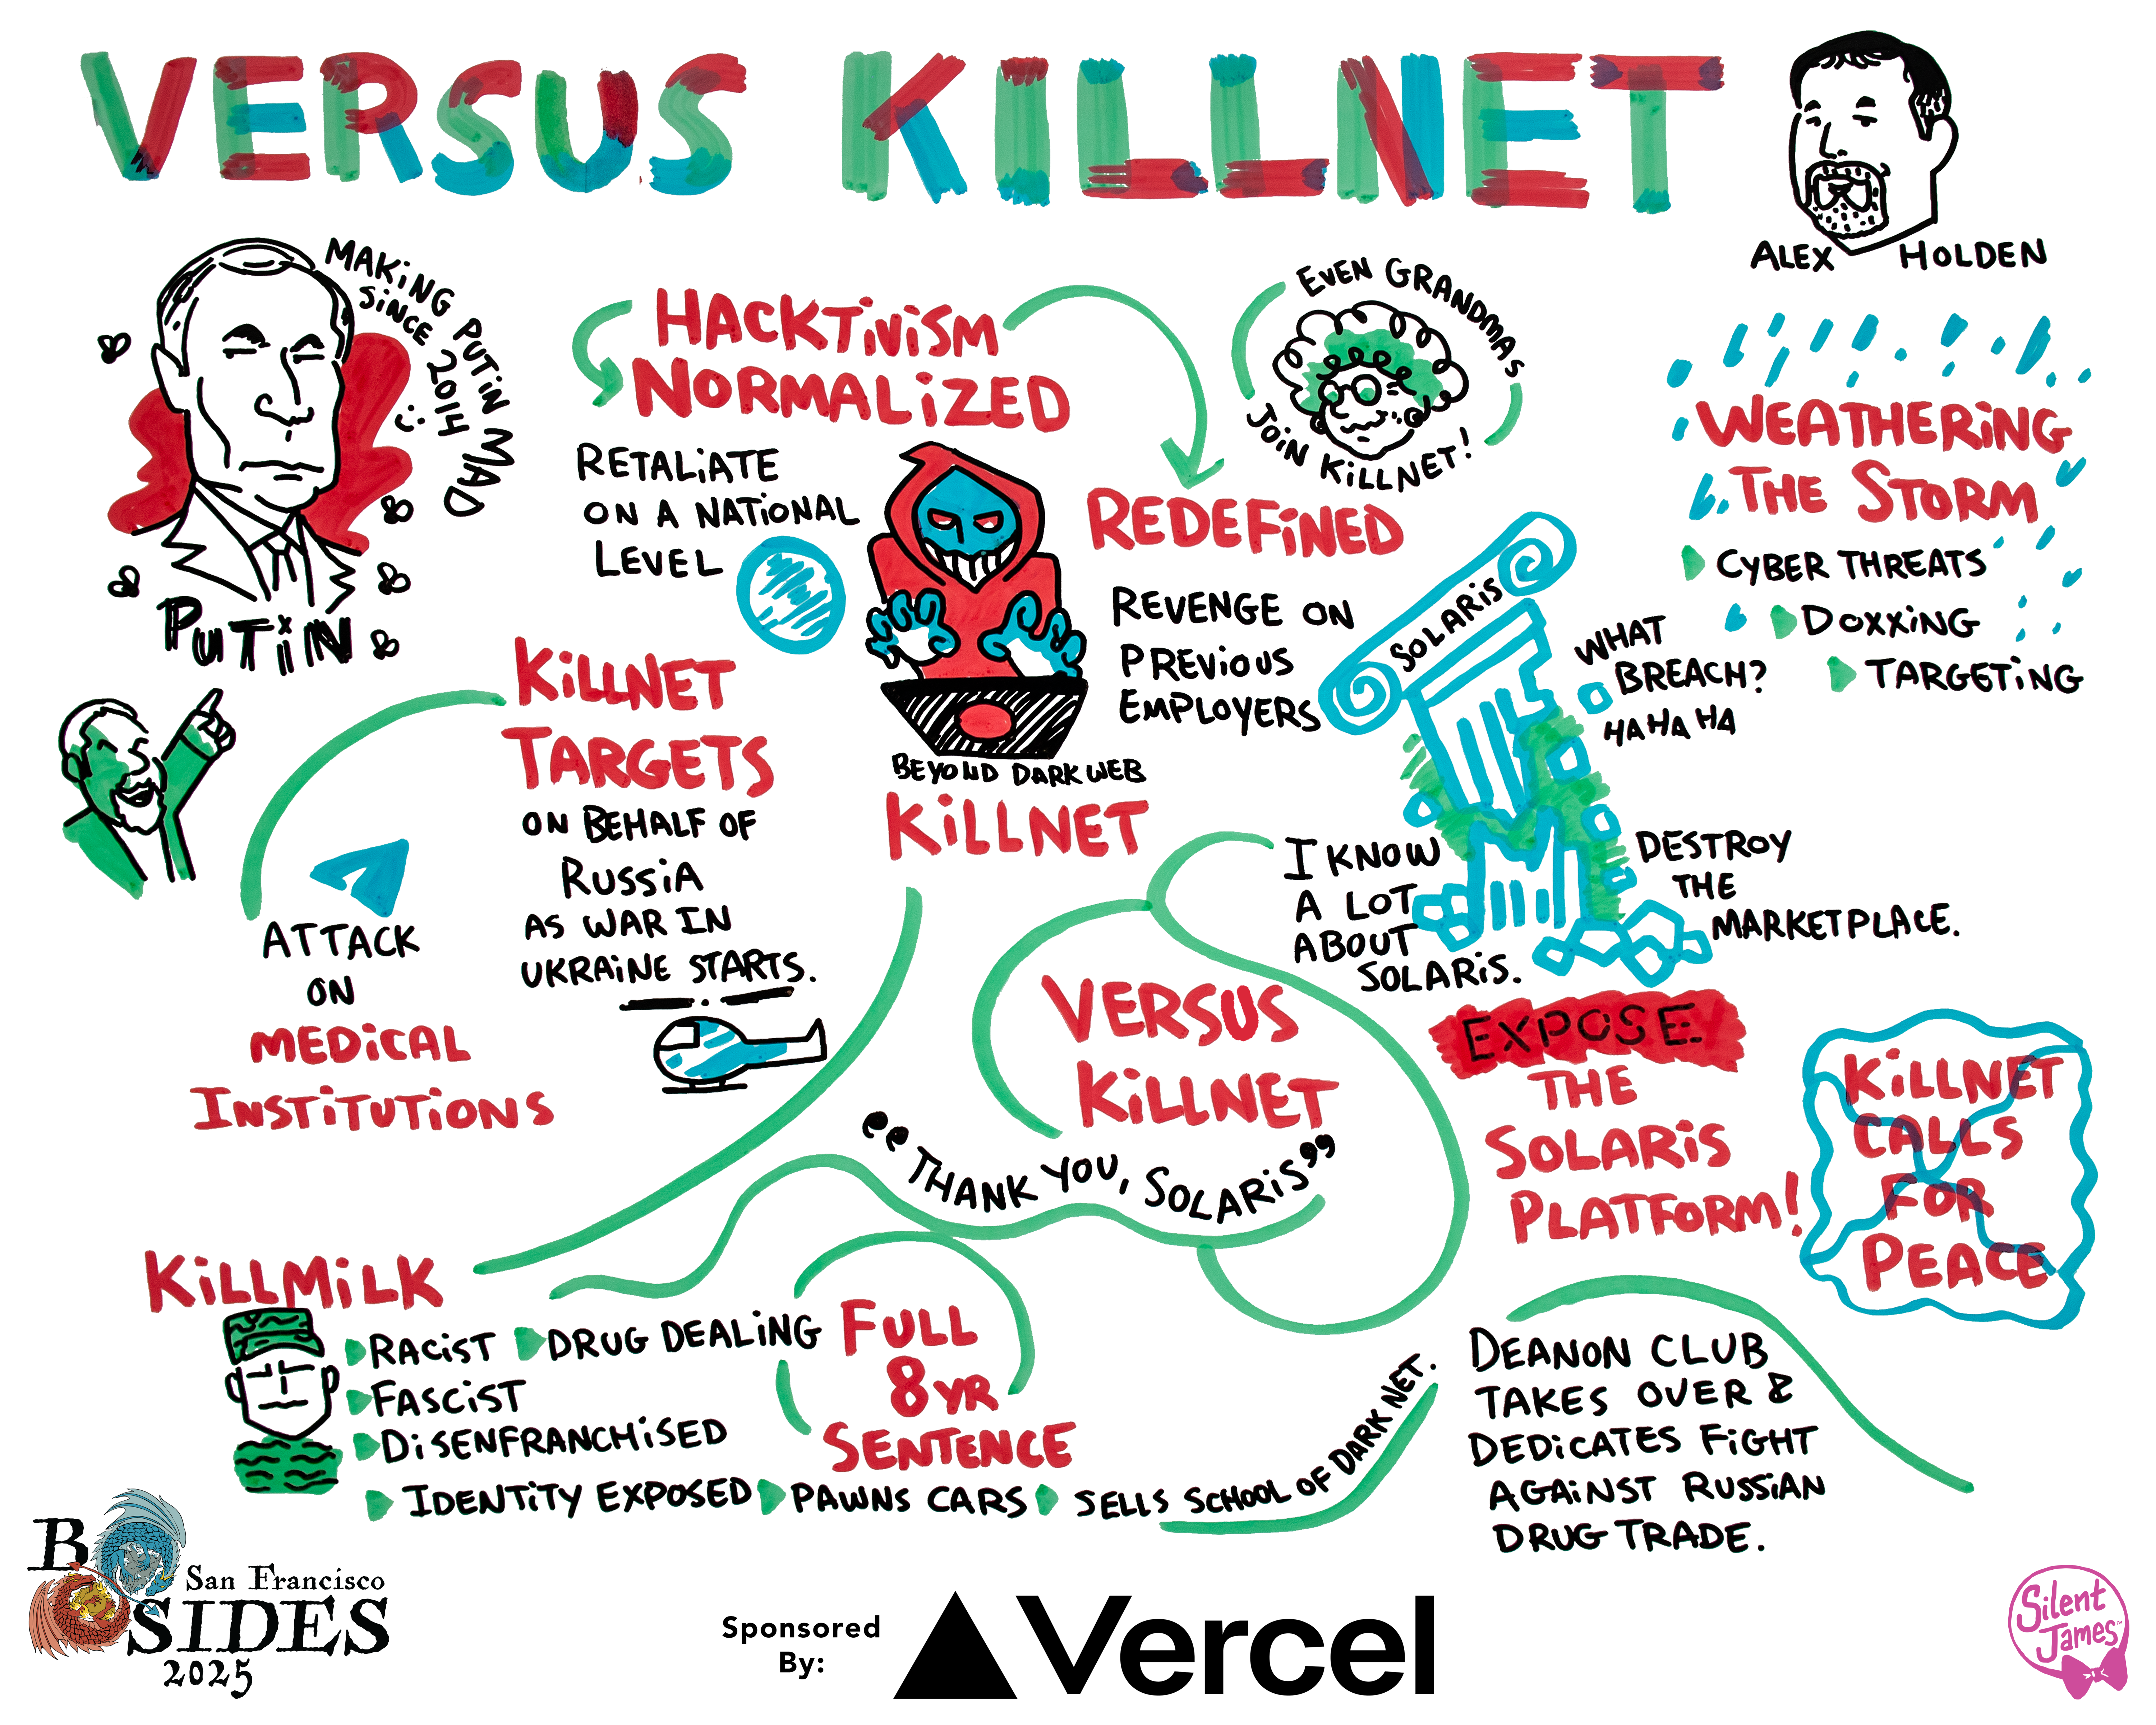 VERSUS KILLNET
ALEX HOLDEN
MAKING PUTIN MAD
SINCE 2014 :)
PUTIN
HACKTIVISM
NORMALIZED
RETALIATE
ON A NATIONAL
LEVEL
EVEN GRANDMAS
JOIN KILLNET!
REDEFINED
REVENGE ON
PREVIOUS
EMPLOYERS
WEATHERING
THE STORM
CYBER THREATS
DOXXING
TARGETING
SOLARIS
WHAT
BREACH?
HA HA HA
KILLNET
TARGETS
ON BEHALF OF
RUSSIA
AS WAR IN
UKRAINE STARTS.
BEYOND DARK WEB
KILLNET
ATTACK
ON
MEDICAL
INSTITUTIONS
I KNOW
A LOT
ABOUT
SOLARIS.
DESTROY
THE
MARKETPLACE.
VERSUS
KILLNET
"THANK YOU, SOLARIS"
EXPOSE
THE
SOLARIS
PLATFORM!
KILLNET
CALLS
FOR
PEACE
KILLMILK
RACIST
DRUG DEALING
FASCIST
DISENFRANCHISED
IDENTITY EXPOSED
PAWNS CARS
SELLS SCHOOL OF DARK NET.
FULL
8 YR
SENTENCE
DEANON CLUB
TAKES OVER &
DEDICATES FIGHT
AGAINST RUSSIAN
DRUG TRADE.
B
San Francisco
SIDES
2025
Sponsored
By:
Vercel
Silent
James™